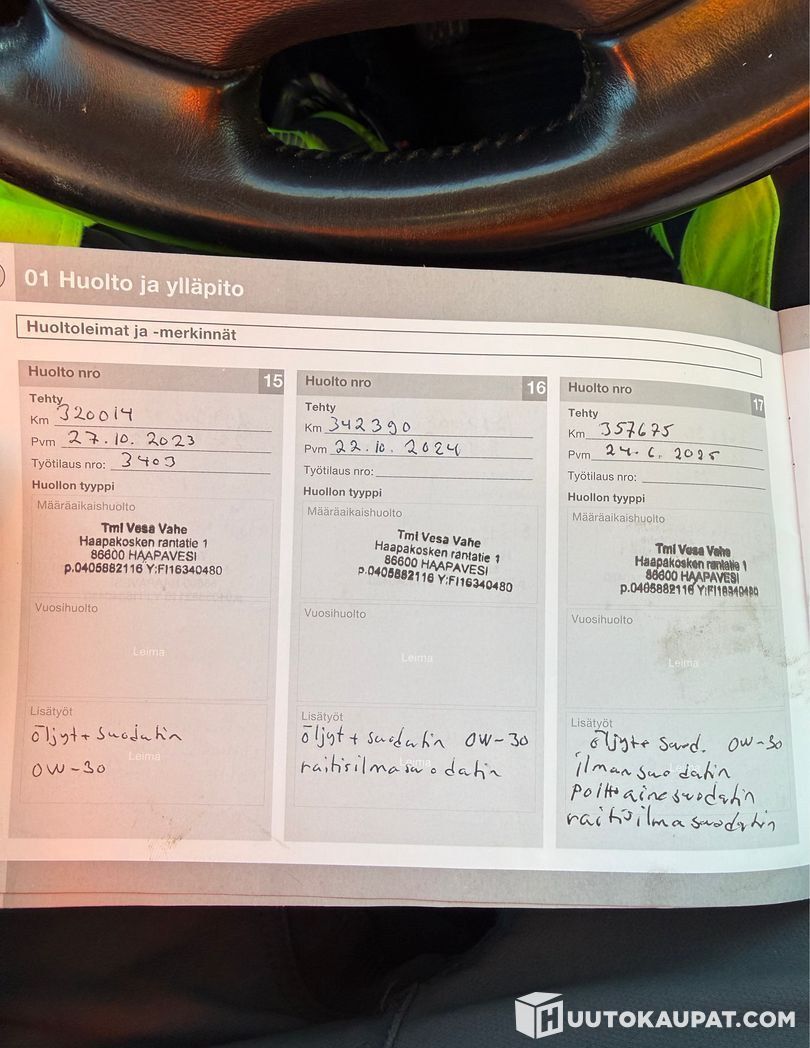 01 Huolto ja ylläpito
Huoltoleimat ja -merkinnät
Huolto nro 15
Tehty
Km 320014
Pvm 27.10.2023
Työtilaus nro: 3403
Huollon tyyppi
Määräaikaishuolto
Tmi Vesa Vahe
Haapakosken rantatie 1
86600 HAAPAVESI
p.0405882116 Y:FI16340480
Vuosihuolto
Leima
Lisätyöt
öljyt + suodatin
Leima
0W-30
Huolto nro 16
Tehty
Km 342390
Pvm 22.10.2024
Työtilaus nro:
Huollon tyyppi
Määräaikaishuolto
Tmi Vesa Vahe
Haapakosken rantatie 1
86600 HAAPAVESI
p.0405882116 Y:FI16340480
Vuosihuolto
Leima
Lisätyöt
öljyt + suodatin 0W-30
Leima
raitisilmasuodatin
Huolto nro 17
Tehty
Km 357675
Pvm 24.6.2025
Työtilaus nro:
Huollon tyyppi
Määräaikaishuolto
Tmi Vesa Vahe
Haapakosken rantatie 1
86600 HAAPAVESI
p.0405882116 Y:FI16340480
Vuosihuolto
Leima
Lisätyöt
öljyt+ suod. 0W-30
Leima
ilmansuodatin
polttoainesuodatin
raitisilmasuodatin
HUUTOKAUPAT.COM